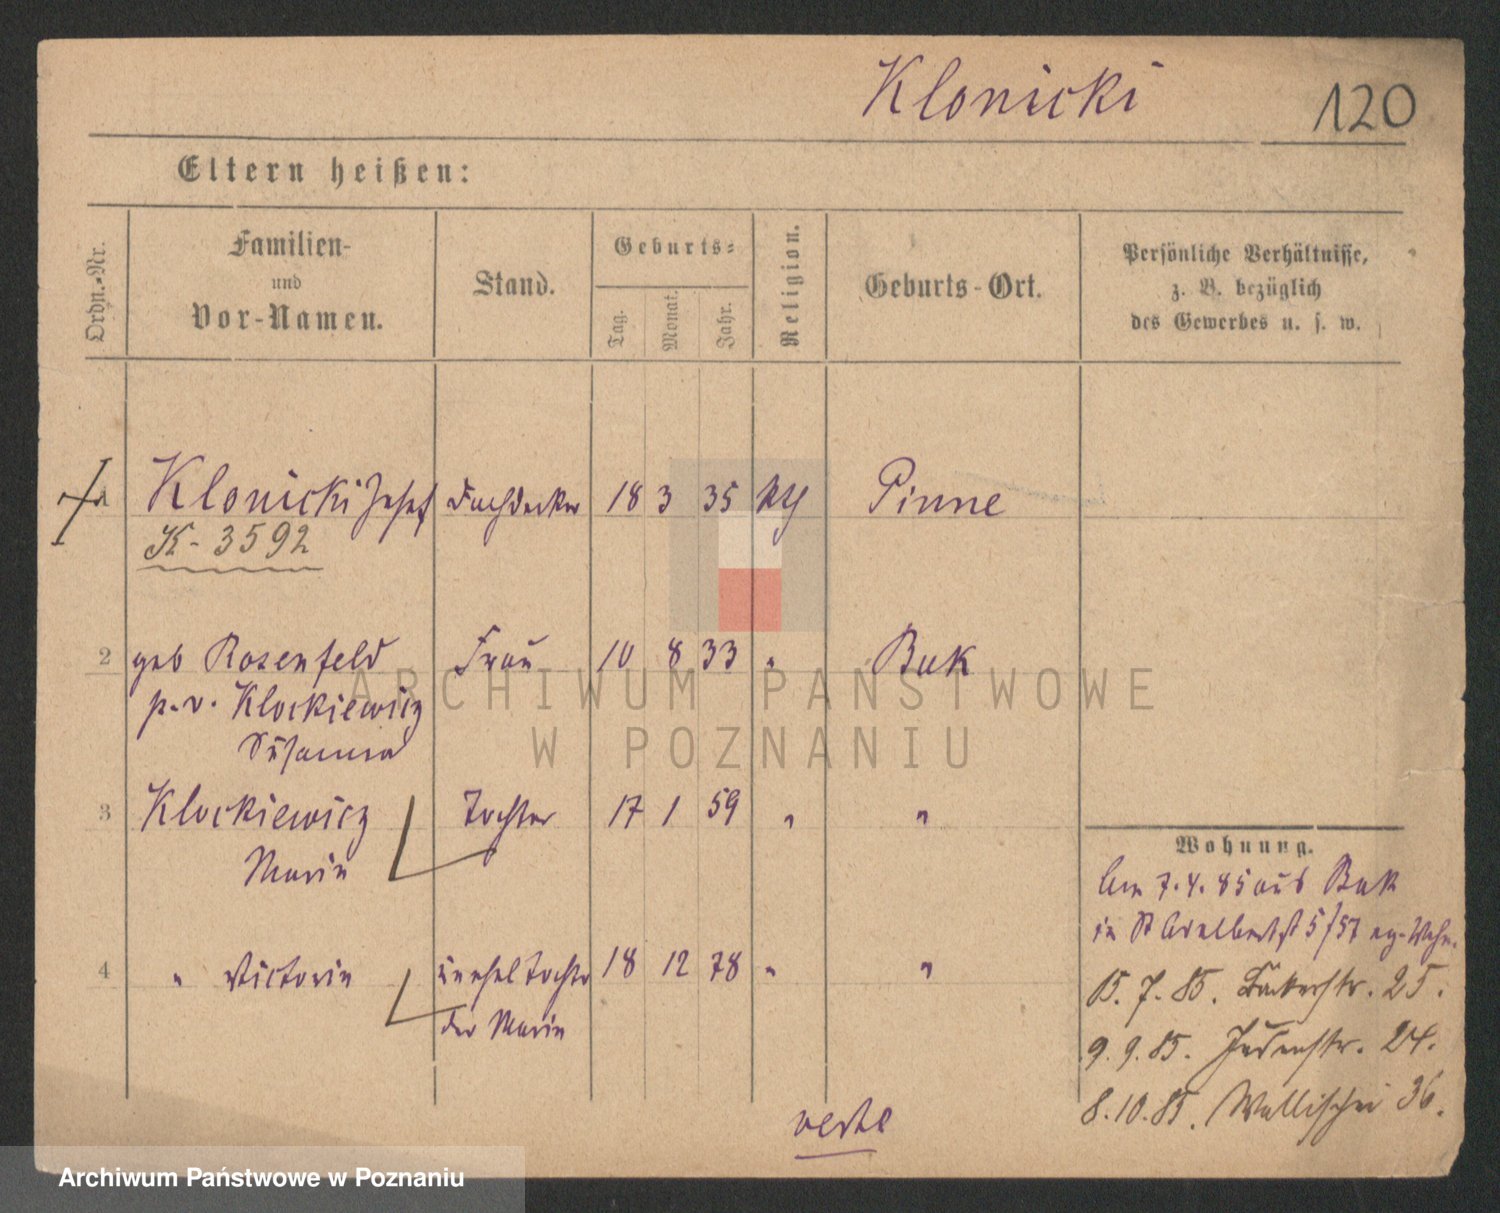 Klonicki
120
Eltern heißen:
Ordn.-Nr.
Familien-
und
Vor-Namen.
Stand.
Geburts-
Tag.
Monat.
Jahr.
Religion.
Geburts-Ort.
Persönliche Verhältnisse,
z. B. bezüglich
des Gewerbes u. s. w.
1 Klonicki Josef Dachdecker 18 3 35 Pinne
K-3592
2 geb Rosenfeld Frau 10 8 33 " Buk
p.v. Klockiewicz
Susanna
3 Klockiewicz Tochter 17 1 59 " "
Marie
4 " Victorie unehel Tochter 18 12 78 " "
der Marie
Wohnung.
Am 7.4.85 aus Buk
in St Adalbertst 5/57
15. 7. 85. Bäckerstr. 25.
9. 9. 85. Judenstr. 24.
8. 10. 85. Wallischei 36.
verte
ARCHIWUM PAŃSTWOWE
W POZNANIU
Archiwum Państwowe w Poznaniu